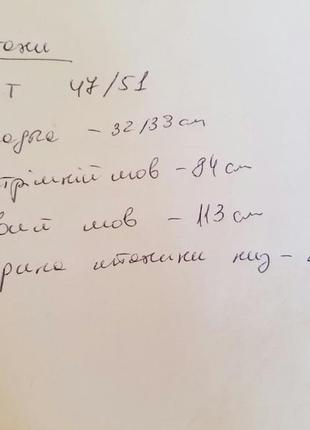 тани
Т 47/51
садка - 32/33 см
трішній шов - 84 см
вий шов - 113 см
рина штанини низ -